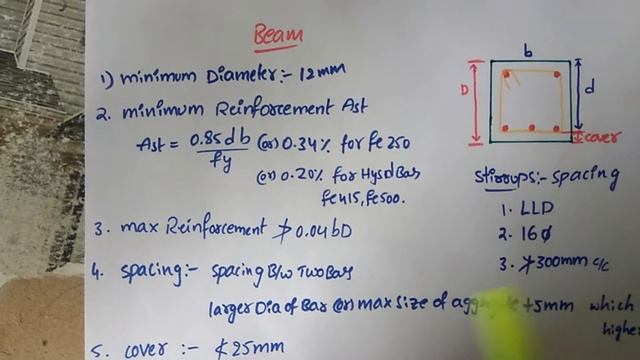 Beam
1) minimum Diameter:- 12mm
2. minimum Reinforcement Ast
Ast = 0.85db/fy (or) 0.34% for fe 250
(or) 0.20% for Hysd Bars
fe415, fe500.
3. max Reinforcement ≯ 0.04bD
4. spacing:- spacing B/w Two Bars
larger Dia of Bar (or) max size of aggregate +5mm which
higher
5. cover :- ≮ 25mm
b
D
d
cover
Stirrups:- spacing
1. LLD
2. 16ϕ
3. ≯300mm c/c